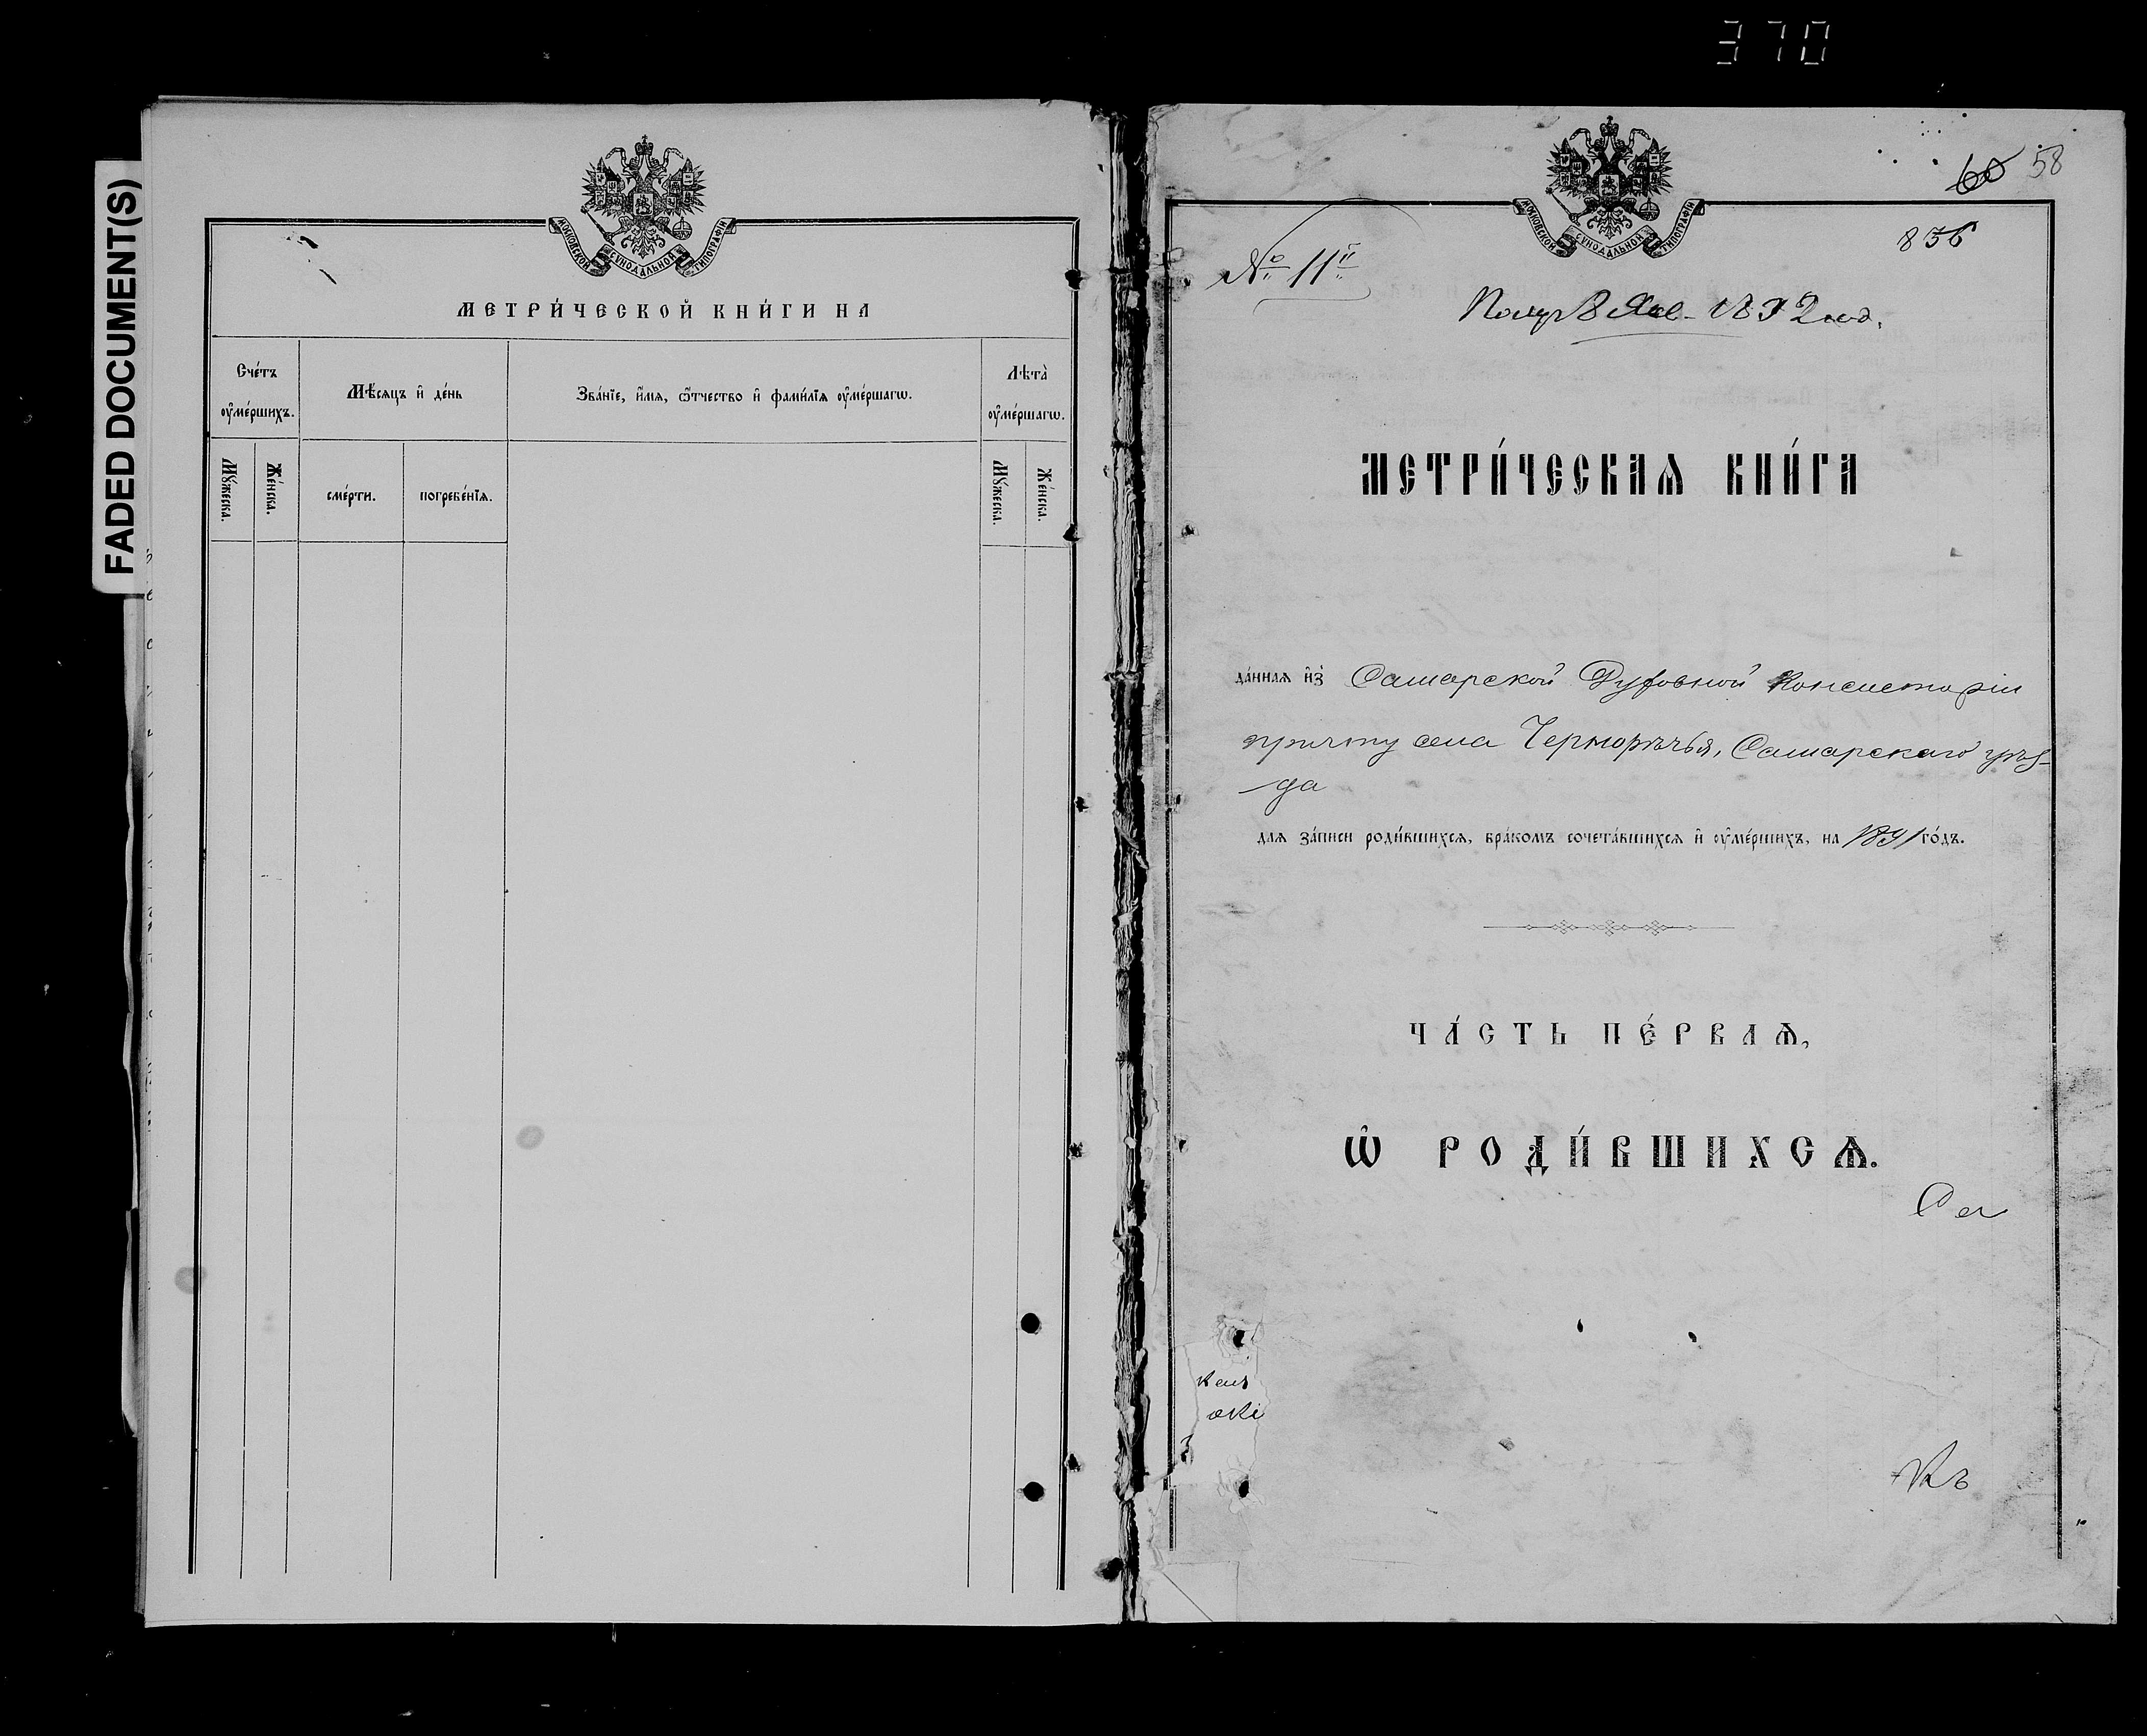 370
FADED DOCUMENT(S)
МОСКОВСКОЙ СѴНОДАЛЬНОЙ ТИПОГРАФІИ
МЕТРИ́ЧЕСКОЙ КНИ́ГИ НА
Сче́тъ ᲂу҆ме́ршихъ.
Мѣ́сяцъ и҆ де́нь
Зва́нїе, и҆́мѧ, ѻ҆́тчество и҆ фами́лїѧ ᲂу҆ме́ршагѡ.
Лѣ́та̀ ᲂу҆ме́ршагѡ.
Мꙋ́жеска.
Же́нска.
сме́рти.
погребе́нїѧ.
Мꙋ́жеска.
Же́нска.
58
МОСКОВСКОЙ СѴНОДАЛЬНОЙ ТИПОГРАФІИ
836
№ 11й
8 Янв. 1892 год.
МЕТРИ́ЧЕСКАѦ КНИ́ГА
да́ннаѧ и҆з̾ Самарской Духовной Консисторіи
причту села Чернорѣчья, Самарскаго уѣз-
да
длѧ за́писи роди́вшихсѧ, бра́комъ сочета́вшихсѧ и҆ ᲂу҆ме́ршихъ, на 1891 го́дъ.
ЧА́СТЬ ПЕ́РВАѦ,
Ѽ РОДИ́ВШИХСѦ.
Къ